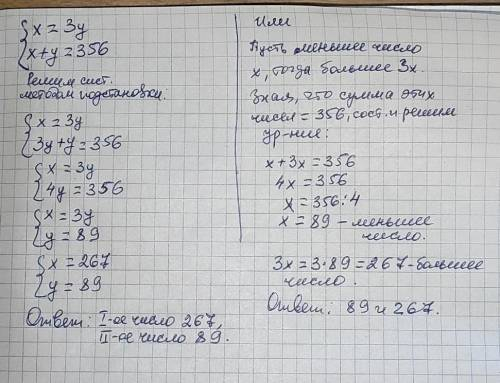 x = 3y
x+y = 356
Решим сист.
методом подстановки.
x = 3y
3y+y = 356
x = 3y
4y = 356
x = 3y
y = 89
x = 267
y = 89
Ответ: I-ое число 267,
II-ое число 89.
Или
Пусть меньшее число
x, тогда большее 3x.
Зная, что сумма этих
чисел = 356, сост. и решим
ур-ние:
x+3x = 356
4x = 356
x = 356:4
x = 89 – меньшее
число.
3x = 3·89 = 267 - большее
число.
Ответ: 89 и 267.